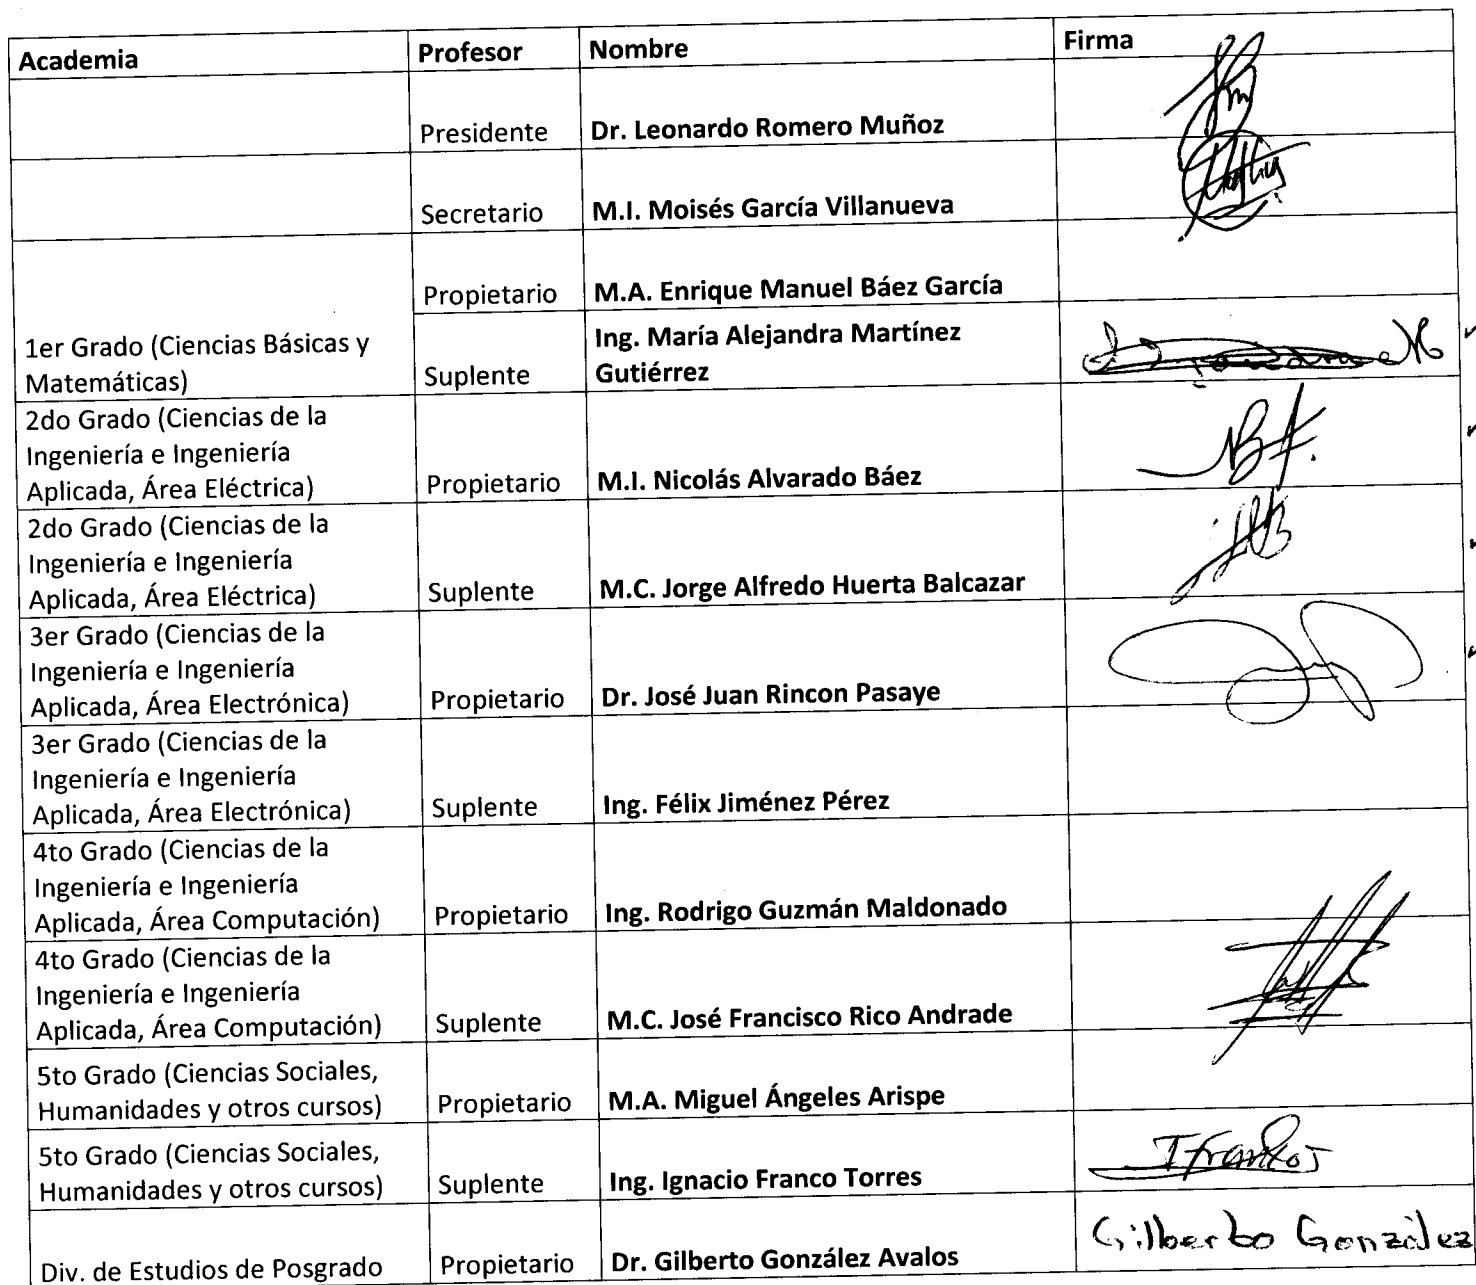 Academia Profesor Nombre Firma
Presidente Dr. Leonardo Romero Muñoz
Secretario M.I. Moisés García Villanueva
Propietario M.A. Enrique Manuel Báez García
1er Grado (Ciencias Básicas y
Matemáticas)
Suplente
Ing. María Alejandra Martínez
Gutiérrez
2do Grado (Ciencias de la
Ingeniería e Ingeniería
Aplicada, Área Eléctrica) Propietario M.I. Nicolás Alvarado Báez
2do Grado (Ciencias de la
Ingeniería e Ingeniería
Aplicada, Área Eléctrica) Suplente M.C. Jorge Alfredo Huerta Balcazar
3er Grado (Ciencias de la
Ingeniería e Ingeniería
Aplicada, Área Electrónica) Propietario Dr. José Juan Rincon Pasaye
3er Grado (Ciencias de la
Ingeniería e Ingeniería
Aplicada, Área Electrónica) Suplente Ing. Félix Jiménez Pérez
4to Grado (Ciencias de la
Ingeniería e Ingeniería
Aplicada, Área Computación) Propietario Ing. Rodrigo Guzmán Maldonado
4to Grado (Ciencias de la
Ingeniería e Ingeniería
Aplicada, Área Computación) Suplente M.C. José Francisco Rico Andrade
5to Grado (Ciencias Sociales,
Humanidades y otros cursos) Propietario M.A. Miguel Ángeles Arispe
5to Grado (Ciencias Sociales,
Humanidades y otros cursos) Suplente Ing. Ignacio Franco Torres
Div. de Estudios de Posgrado Propietario Dr. Gilberto González Avalos Gilberto González